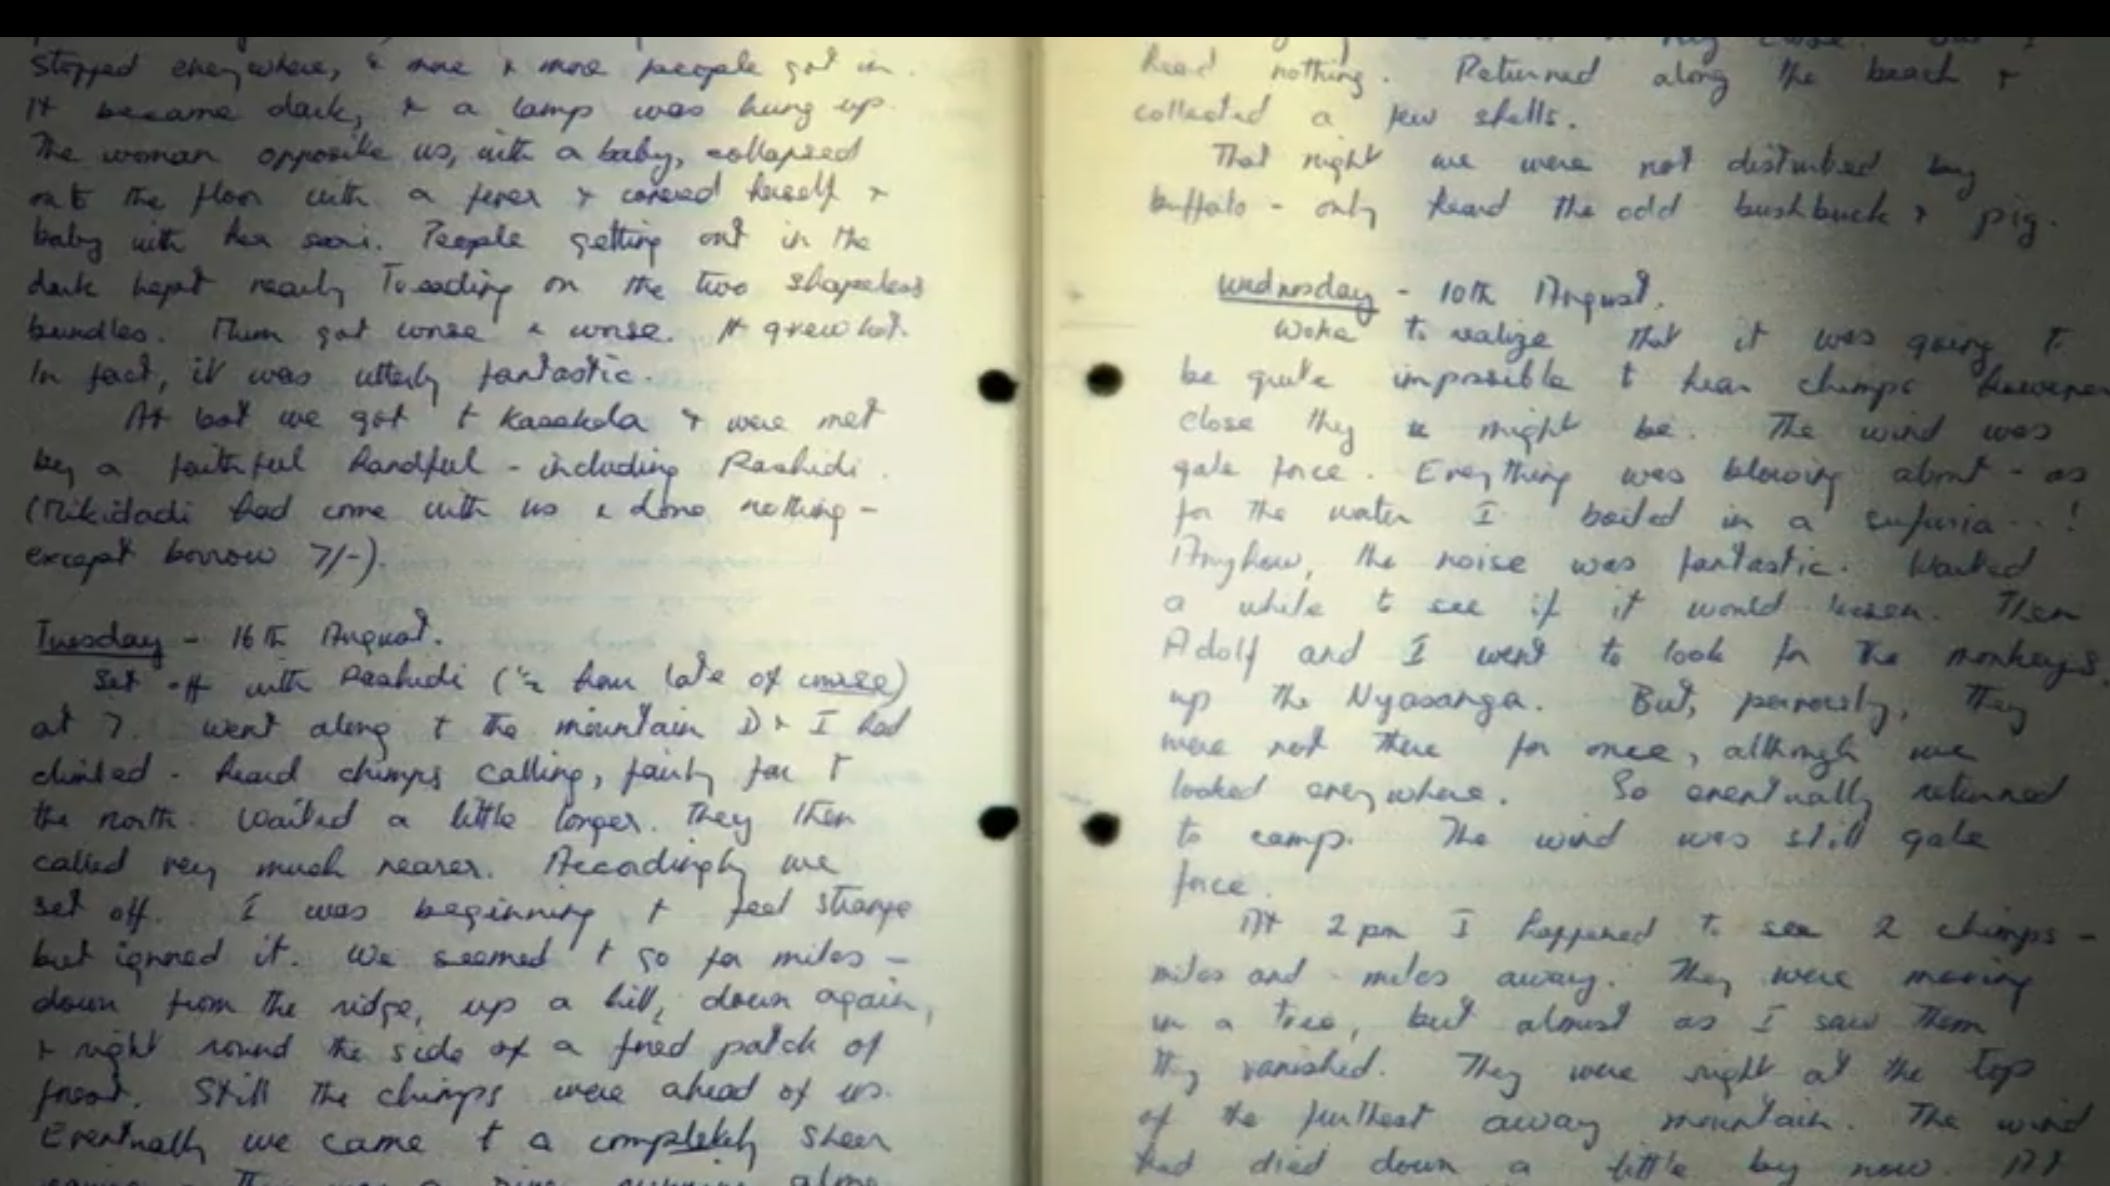 stopped everywhere, & more & more people got in.
It became dark, & a lamp was hung up.
The woman opposite us, with a baby, collapsed
onto the floor with a fever & covered herself &
baby with her sari. People getting out in the
dark kept nearly treading on the two shapeless
bundles. Then got worse & worse. It grew hot.
In fact, it was utterly fantastic.
At last we got to Kasakela & were met
by a faithful handful - including Rashidi.
(Mikidadi had come with us & done nothing -
except borrow 7/-).
Tuesday - 16th August.
Set off with Rashidi (½ hour late of course)
at 7. Went along to the mountain D & I had
climbed. Heard chimps calling, fairly far to
the north. Waited a little longer. They then
called very much nearer. Accordingly we
set off. I was beginning to feel strange
but ignored it. We seemed to go for miles -
down from the ridge, up a hill, down again,
& right round the side of a patch of
forest. Still the chimps were ahead of us.
Eventually we came to a completely sheer
along
heard nothing. Returned along the beach &
collected a few shells.
That night we were not disturbed by
buffalo - only heard the odd bushbuck & pig.
Wednesday - 10th August.
Woke to realize that it was going to
be quite impossible to hear chimps however
close they might be. The wind was
gale force. Everything was blowing about - as
for the water I boiled in a sufuria...!
Anyhow, the noise was fantastic. Waited
a while to see if it would lessen. Then
Adolf and I went to look for the monkeys
up the Nyasanga. But, perversely, they
were not there for once, although we
looked everywhere. So eventually returned
to camp. The wind was still gale
force.
At 2 pm I happened to see 2 chimps -
miles and miles away. They were moving
in a tree, but almost as I saw them
they vanished. They were right at the top
of the furthest away mountain. The wind
had died down a little by now. At